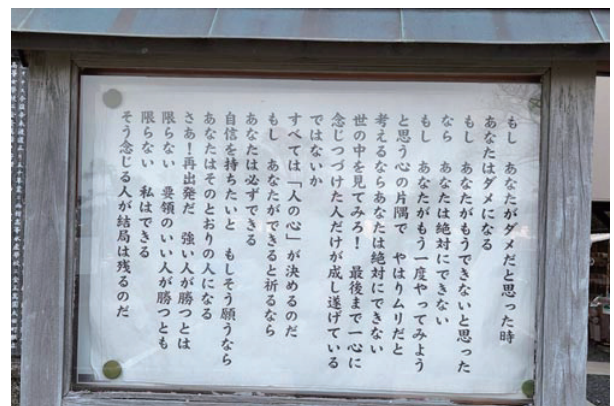 もし　あなたがダメだと思った時
あなたはダメになる
もし　あなたがもうできないと思った
なら　あなたは絶対にできない
もし　あなたがもう一度やってみよう
と思う心の片隅で　やはりムリだと
考えるならあなたは絶対にできない
世の中を見てみろ！　最後まで一心に
念じつづけた人だけが成し遂げている
ではないか
すべては「人の心」が決めるのだ
もし　あなたができると祈るなら
あなたは必ずできる
自信を持ちたいと　もしそう願うなら
あなたはそのとおりの人になる
さあ！再出発だ　強い人が勝つとは
限らない　要領のいい人が勝つとも
限らない　私はできる
そう念じる人が結局は残るのだ